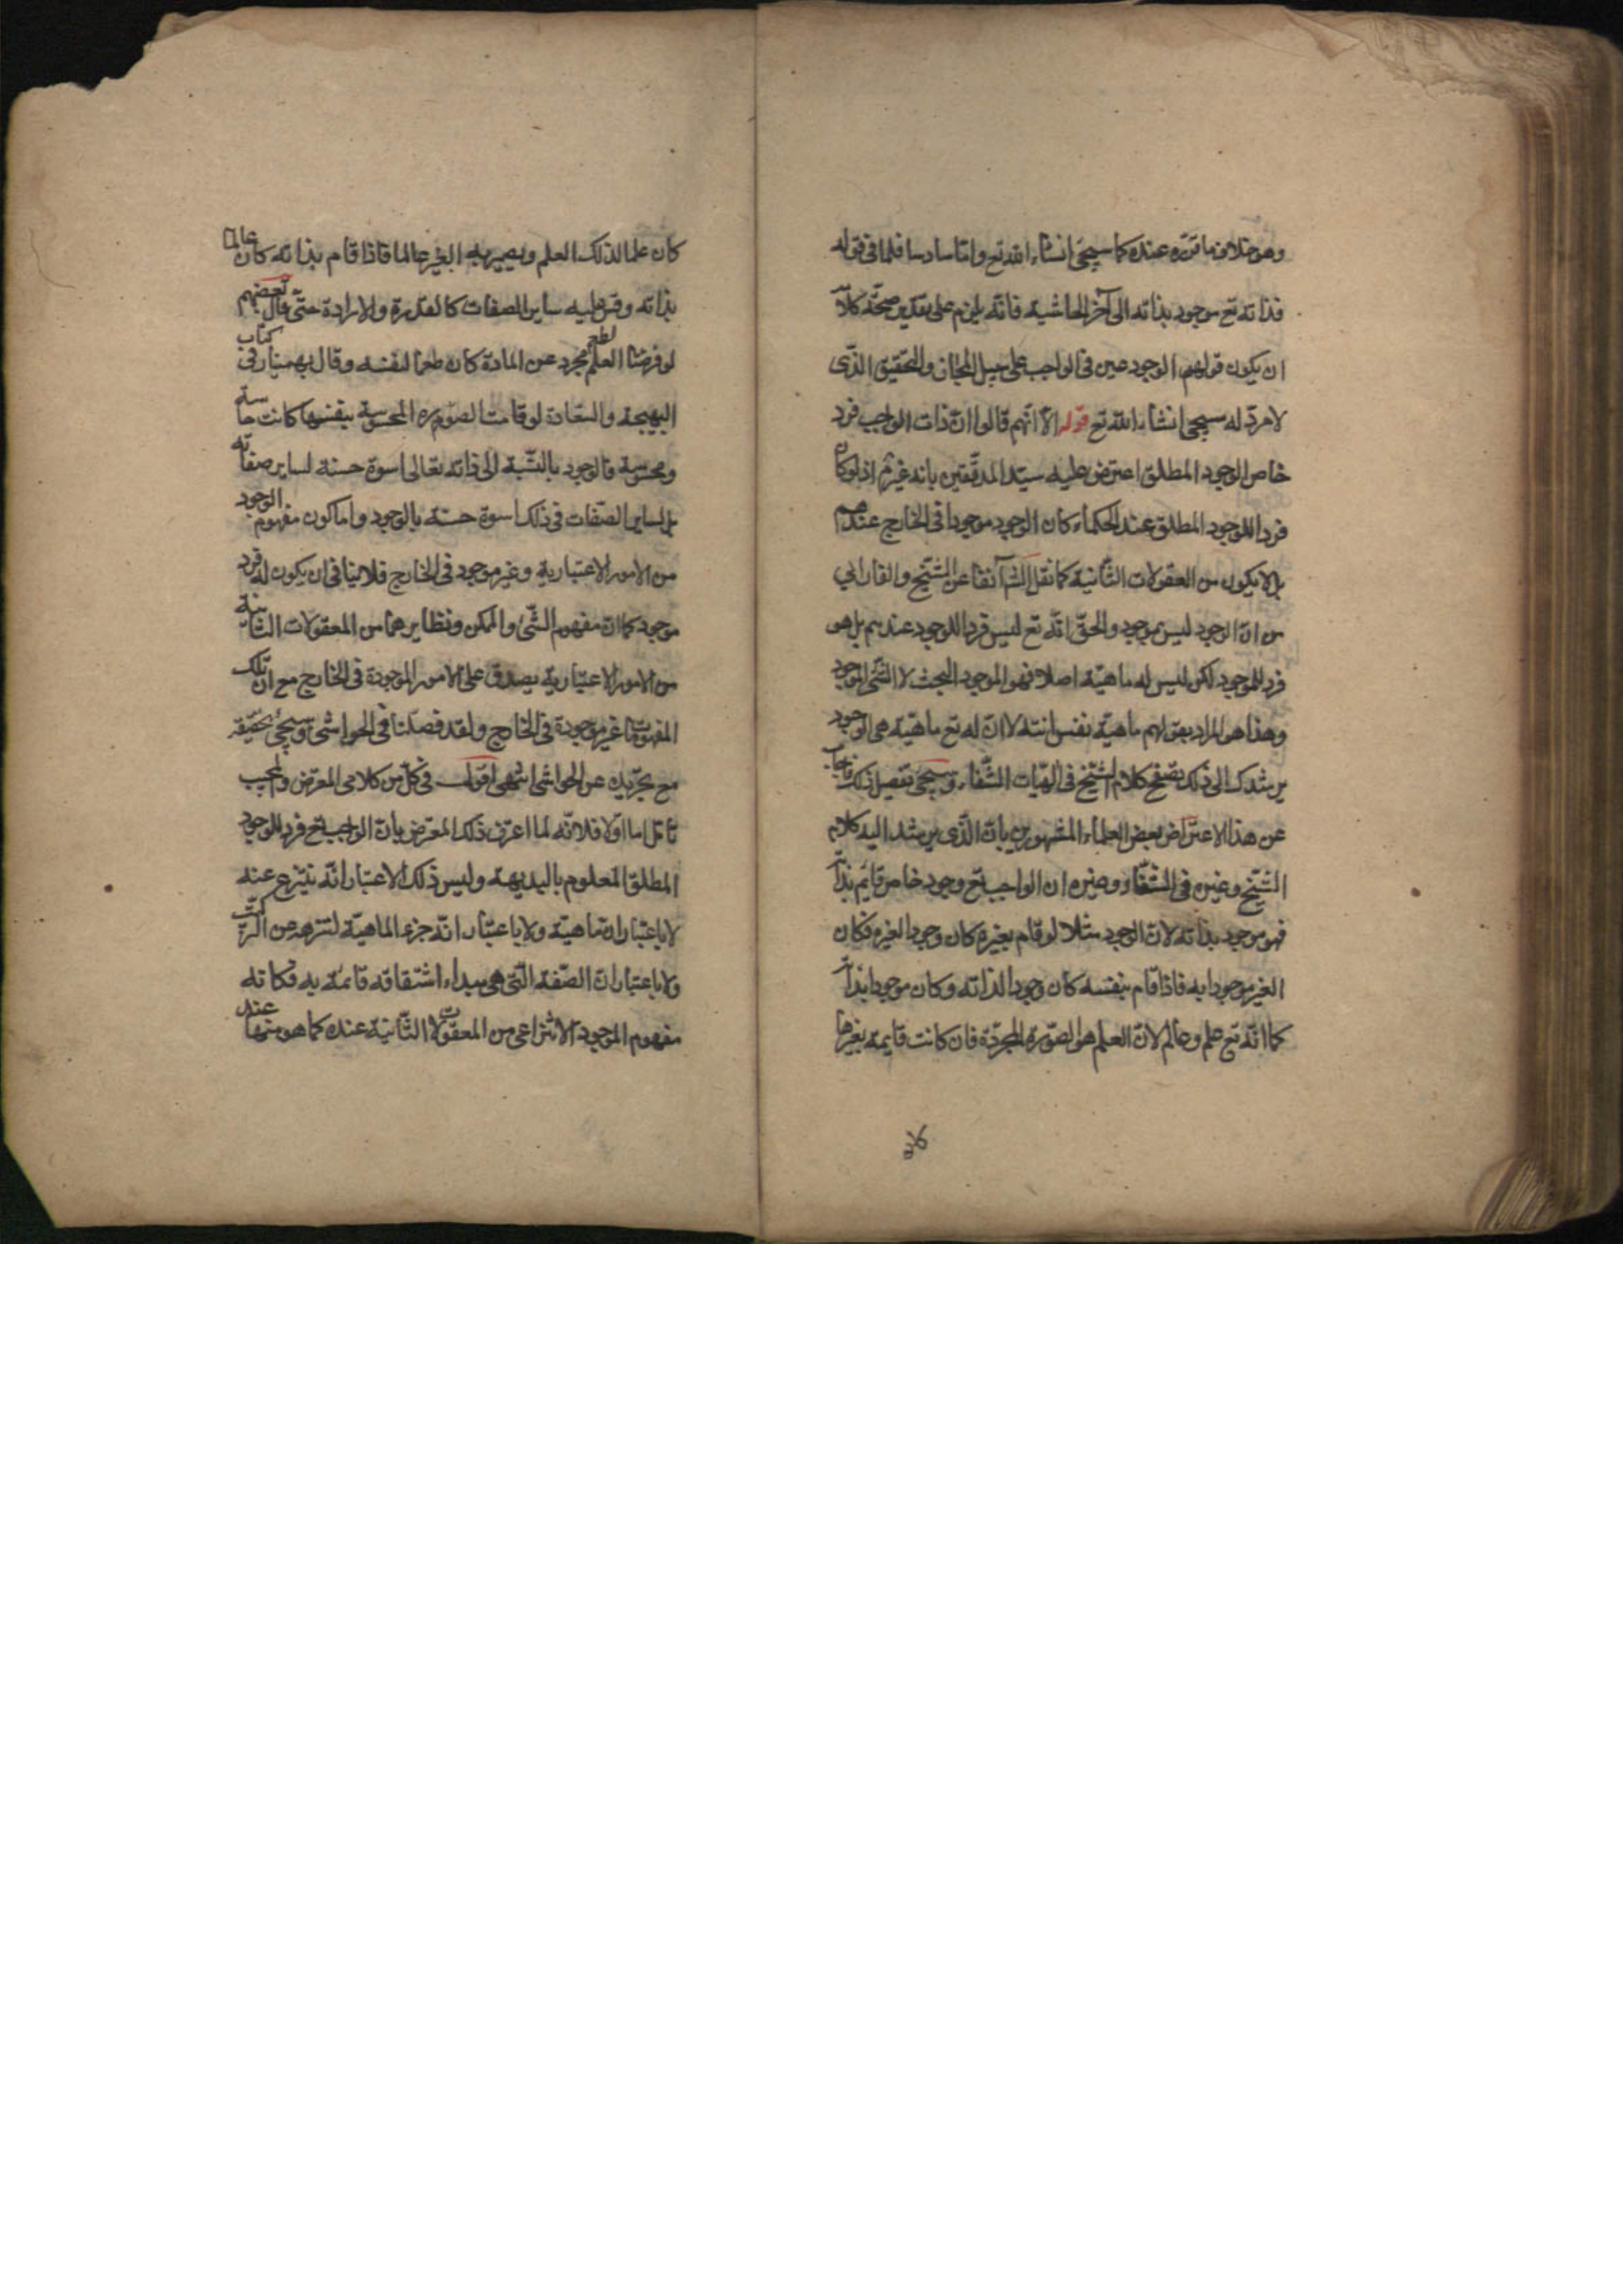 وهو خلاف ما تقرّر عنده كما سيجئ انشاء الله تع واما سادسا فلما فى قوله
فذاته تع موجود بذاته الى آخر الحاشية فانه يلزم على تقدير صحّة كلامه
ان يكون قولهم الوجود عين فى الواجب على سبيل المجاز والتحقيق الذّى
لا مردّ له سيجئ انشاء الله تع قوله الا انّهم قالوا انّ ذات الواجب فرد
خاص الوجود المطلق اعترض عليه سيّد المدقّقين بانه غير اذ لو كان
فرد اللوجود المطلق عند الحكماء كان الوجود موجودا فى الخارج عندهم
بل لا يكون من المعقولات الثّانية كما نقل الشّ آنفا عن الشّيخ والفارابي
من انّ الوجود ليس بموجود والحقّ انّه تع ليس فردا للوجود عندهم بل هو
فرد للموجود لكن ليس له ماهيّة اصلا فهو الموجود البحت لا الشّئ الموجود
وهذا هو المراد بقولهم ماهيّة نفس انيّته لا انّ له تع ماهيّة هى الوجود
يرشدك الى ذلك تصفح كلام الشّيخ فى الهيّات الشّفاء وسيجئ تفصيل ذلك فاجاب
عن هذا الاعتراض بعض العلماء المشهورين بانّ الذّى يرشد اليه كلام
الشّيخ وغيره فى الشّفاء وغيره ان الواجب تع وجود خاص قايم بذاته
فهو موجود بذاته لانّ الوجود مثلا لو قام بغيره كان وجودا لغيره فكان
الغير موجودا به فاذا قام بنفسه كان وجودا لذاته وكان موجودا بذاته
كما انّه تع علم وعالم لانّ العلم هو الصّورة المجرّدة فان كانت قايمة بغيرها
كان علما لذلك العلم ويصير به الغير عالما فاذا قام بذاته كان عالما
بذاته وقس عليه ساير الصفات كالقدرة والارادة حتّى قال بعضهم
لو فرضنا الطعم مجرد عن المادة كان طعما لنفسه وقال بهمنيار فى كتاب
البهجة والسّعادة لو قامت الصّورة المحسوسة بنفسها كانت حاسة
ومحسوسة فالوجود بالنّسبة الى ذاته تعالى اسوة حسنة لساير صفاته
بل لساير الصّفات فى ذلك اسوة حسنة بالوجود واما كون مفهوم الوجود
من الامور الاعتبارية وغير موجود فى الخارج فلا ينافى ان يكون له فرد
موجود كما انّ مفهوم الشّئ والممكن ونظايرهما من المعقولات الثّانية
من الامور الاعتبارية يصدق على الامور الموجودة فى الخارج مع انّ تلك
المفهومات غير موجودة فى الخارج ولقد فصّلنا فى الحواشى وسيجئ تحقيقه
مع تجريده عن الحواشى انتهى اقول فى كلّ من كلامى المعترض والمجيب
تأمّل اما اولا فلانّه لما اعترف ذلك المعترض بانّ الواجب تع فرد للموجود
المطلق المعلوم بالبديهة وليس ذلك الاعتبار انّه ينتزع عنه
لا باعتبار انّ ماهيّة ولا باعتبار انّه جزء الماهيّة لتنزهه عن التركيب
ولا باعتبار انّ الصّفة التّى هى مبداء اشتقاقه قائمة به فكانه
مفهوم الموجود الانتزاعى من المعقولات الثّانية عنده كما هو منها عند